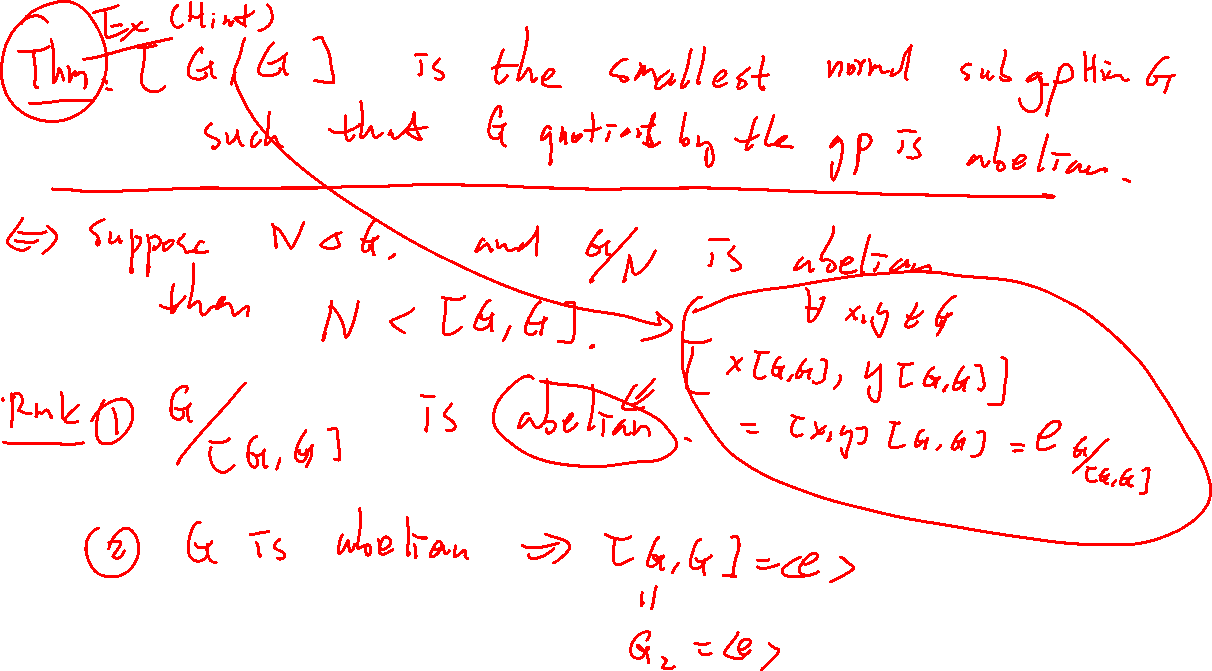 Ex (Hint)
Thm. [G, G] is the smallest normal subgp in G
such that G quotient by the gp is abelian.
⇔ Suppose N ◁ G. and G/N is abelian
then N < [G, G].
∀ x,y ∈ G
[x[G,G], y[G,G]]
= [x,y] [G,G] = e G/[G,G]
Rmk ① G/[G,G] is abelian.
② G is abelian ⇒ [G,G] = <e>
||
G₂ = <e>